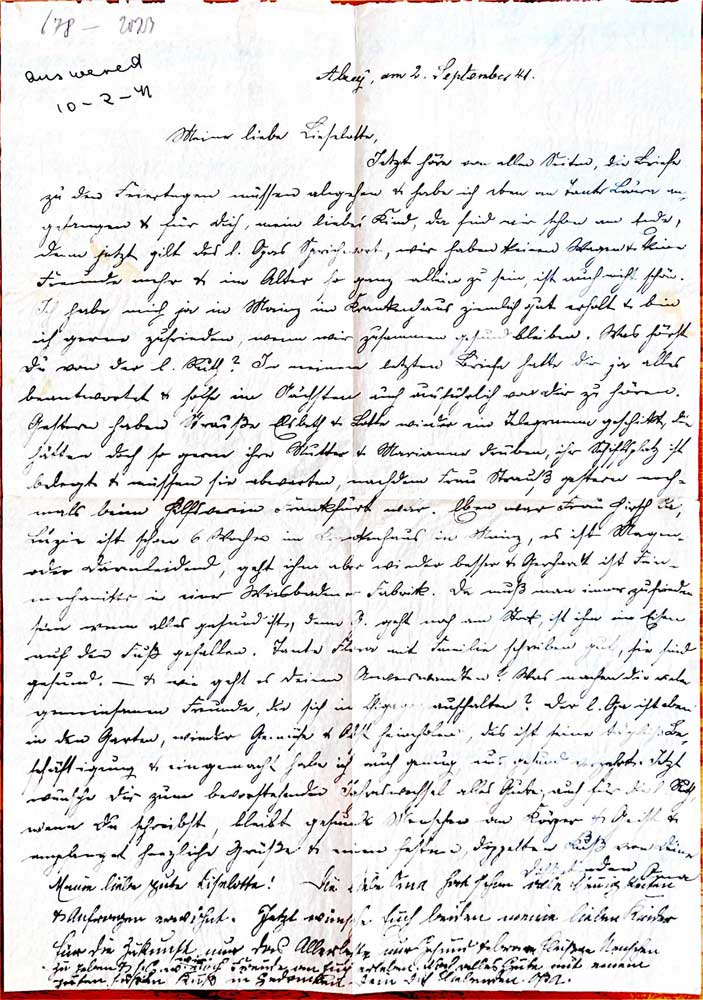 answered
10-2-41
Alzey, am 2. September 41.
Meine liebe Lieselotte,
Jetzt höre von allen Seiten, die Briefe
zu den Feiertagen müssen abgehen & habe ich eben an Tante Laura an-
gefangen & für Dich, mein liebes Kind, da sind wir schon am Ende,
denn jetzt gilt des l. Opas Sprichwort, wir haben keinen Wagen & keine
Freunde mehr & im Alter so ganz allein zu sein, ist auch nicht schön.
Ich habe mich ja in Mainz im Krankenhaus ziemlich gut erholt & bin
ich gerne zufrieden, wenn wir zusammen gesund bleiben. Was hörst
Du von der l. Ruth? In meinem letzten Briefe hatte Dir ja alles
beantwortet & hoffe im Nächsten auch ausführlich von Dir zu hören.
Gestern haben Strauße Elsbeth & Lotte wieder ein Telegramm geschickt, die
hätten doch so gerne ihre Mutter & Marianne drüben, ihr Schiffsplatz ist
belegt & müssen sie abwarten, nachdem Frau Strauß gestern noch-
mals beim Hilfsverein Frankfurt war. Eben war Frau Hirsch da,
ist schon 6 Wochen im Krankenhaus in Mainz, er ist Magen-
oder Darmleidend, geht ihm aber wieder besser & Gerhardt ist Fein-
mechaniker in einer Wiesbadener Fabrik. Da muß man immer zufrieden
sein wenn alles gesund ist, denn geht noch am Stock, ist ihm ein Eisen
auf den Fuß gefallen. Tante Flora mit Familie schreiben gut, sie sind
gesund. — & wie geht es Deinen Anverwandten? Was machen die vielen
gemeinsamen Freunde, die sich in aufhalten? Der l. Opa ist eben
in den Garten, wieder Gemüse & Obst heimholen, das ist seine tägliche Be-
schäftigung & eingemacht habe ich auch genug, nur gesund verzehrt. Jetzt
wünsche Dir zum bevorstehenden Jahreswechsel alles Gute, auch für die l. Ruth,
wenn Du schreibst, bleibt gesunde Menschen an Körper & Geist &
empfanget herzliche Grüße & einen festen, doppelten Kuß von Deiner
Dich liebenden Oma
Meine liebe gute Lieselotte! Die liebe Oma hat schon
& Anfragen erwähnt. Jetzt wünsche Euch beiden meine lieben Kinder
für die Zukunft nur das Allerbeste nur gesund & brave fleißige Menschen
zu Freude an Euch erleben. Noch alles Gute mit einem
Kuß in Gedanken Dein Dich liebender Opa.